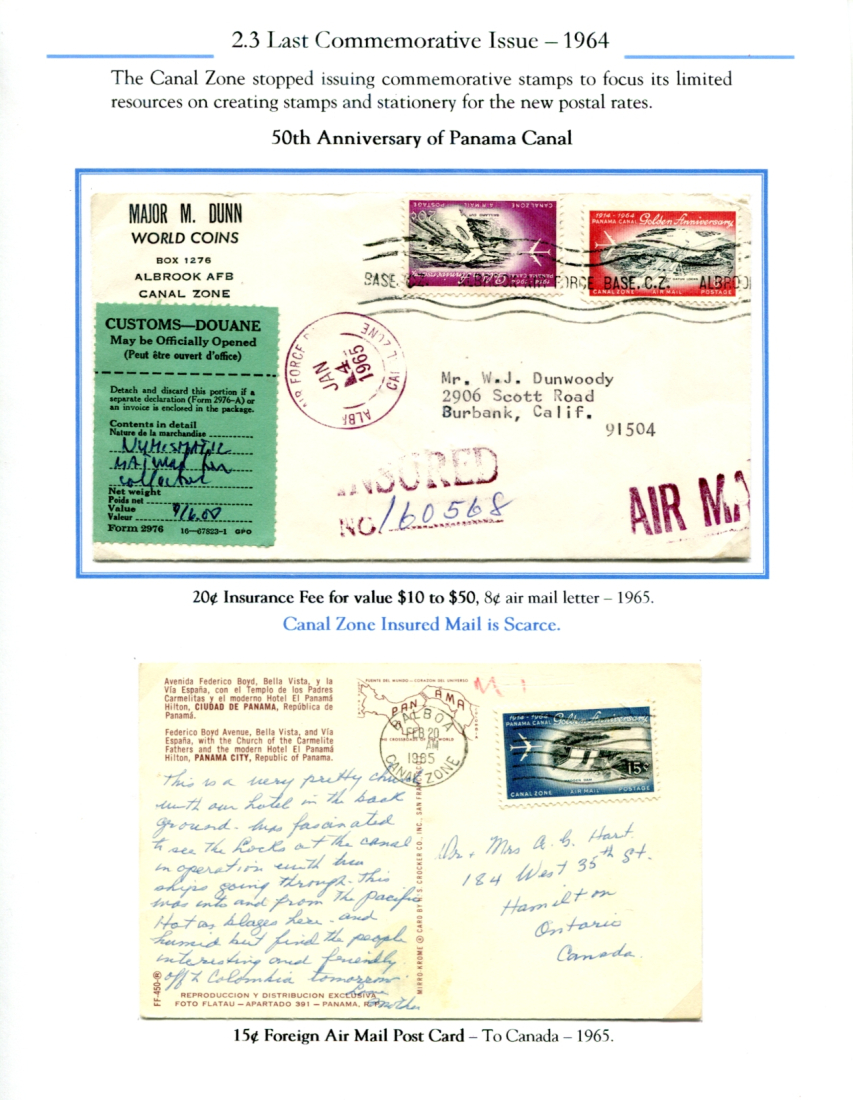 2.3 Last Commemorative Issue – 1964
The Canal Zone stopped issuing commemorative stamps to focus its limited
resources on creating stamps and stationery for the new postal rates.
50th Anniversary of Panama Canal
MAJOR M. DUNN
WORLD COINS
BOX 1276
ALBROOK AFB
CANAL ZONE
CANAL ZONE AIR MAIL POSTAGE
1914 - 1964
PANAMA CANAL Golden Anniversary
CANAL ZONE AIR MAIL POSTAGE
BASE, C.Z. FORCE BASE, C.Z. ALBROO
CUSTOMS—DOUANE
May be Officially Opened
(Peut être ouvert d'office)
Detach and discard this portion if a
separate declaration (Form 2976-A) or
an invoice is enclosed in the package.
Contents in detail
Nature de la marchandise
NUMISMATIC
collector
Net weight
Poids net
Value
Valeur
Form 2976 16—67823-1 GPO
AIR FORCE
CANAL ZONE
ALB
JAN
4
1965
Mr. W.J. Dunwoody
2906 Scott Road
Burbank, Calif.
91504
INSURED
NO 160568
AIR MA
20¢ Insurance Fee for value $10 to $50, 8¢ air mail letter – 1965.
Canal Zone Insured Mail is Scarce.
Avenida Federico Boyd, Bella Vista, y la
Vía España, con el Templo de los Padres
Carmelitas y el moderno Hotel El Panamá
Hilton, CIUDAD DE PANAMA, República de
Panamá.
Federico Boyd Avenue, Bella Vista, and Vía
España, with the Church of the Carmelite
Fathers and the modern Hotel El Panamá
Hilton, PANAMA CITY, Republic of Panama.
PUENTE DEL MUNDO — CORAZON DEL UNIVERSO
PANAMA
BALBOA
FEB 20
AM
1965
CANAL ZONE
1914 - 1964
PANAMA CANAL Golden Anniversary
15¢
CANAL ZONE AIR MAIL POSTAGE
This is a very pretty church
with our hotel in the back
ground. Was fascinated
to see the Locks at the canal
in operation with two
ships going through. This
was into and from the Pacific
Hot as blazes here - and
humid but find the people
interesting and friendly
off to Colombia tomorrow.
Love
Mother
Dr. + Mrs A. G. Hart
184 West 35th St.
Hamilton
Ontario
Canada.
FF-450-®
MIRRO-KROME ® CARD BY H. S. CROCKER CO., INC., SAN FRANCISCO
REPRODUCCION Y DISTRIBUCION EXCLUSIVA
FOTO FLATAU — APARTADO 391 — PANAMA, R. P.
15¢ Foreign Air Mail Post Card – To Canada – 1965.